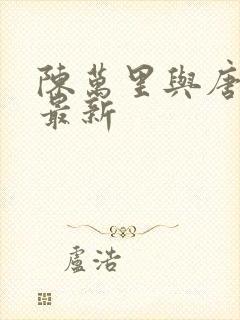 陳萬里與唐
最新
盧浩